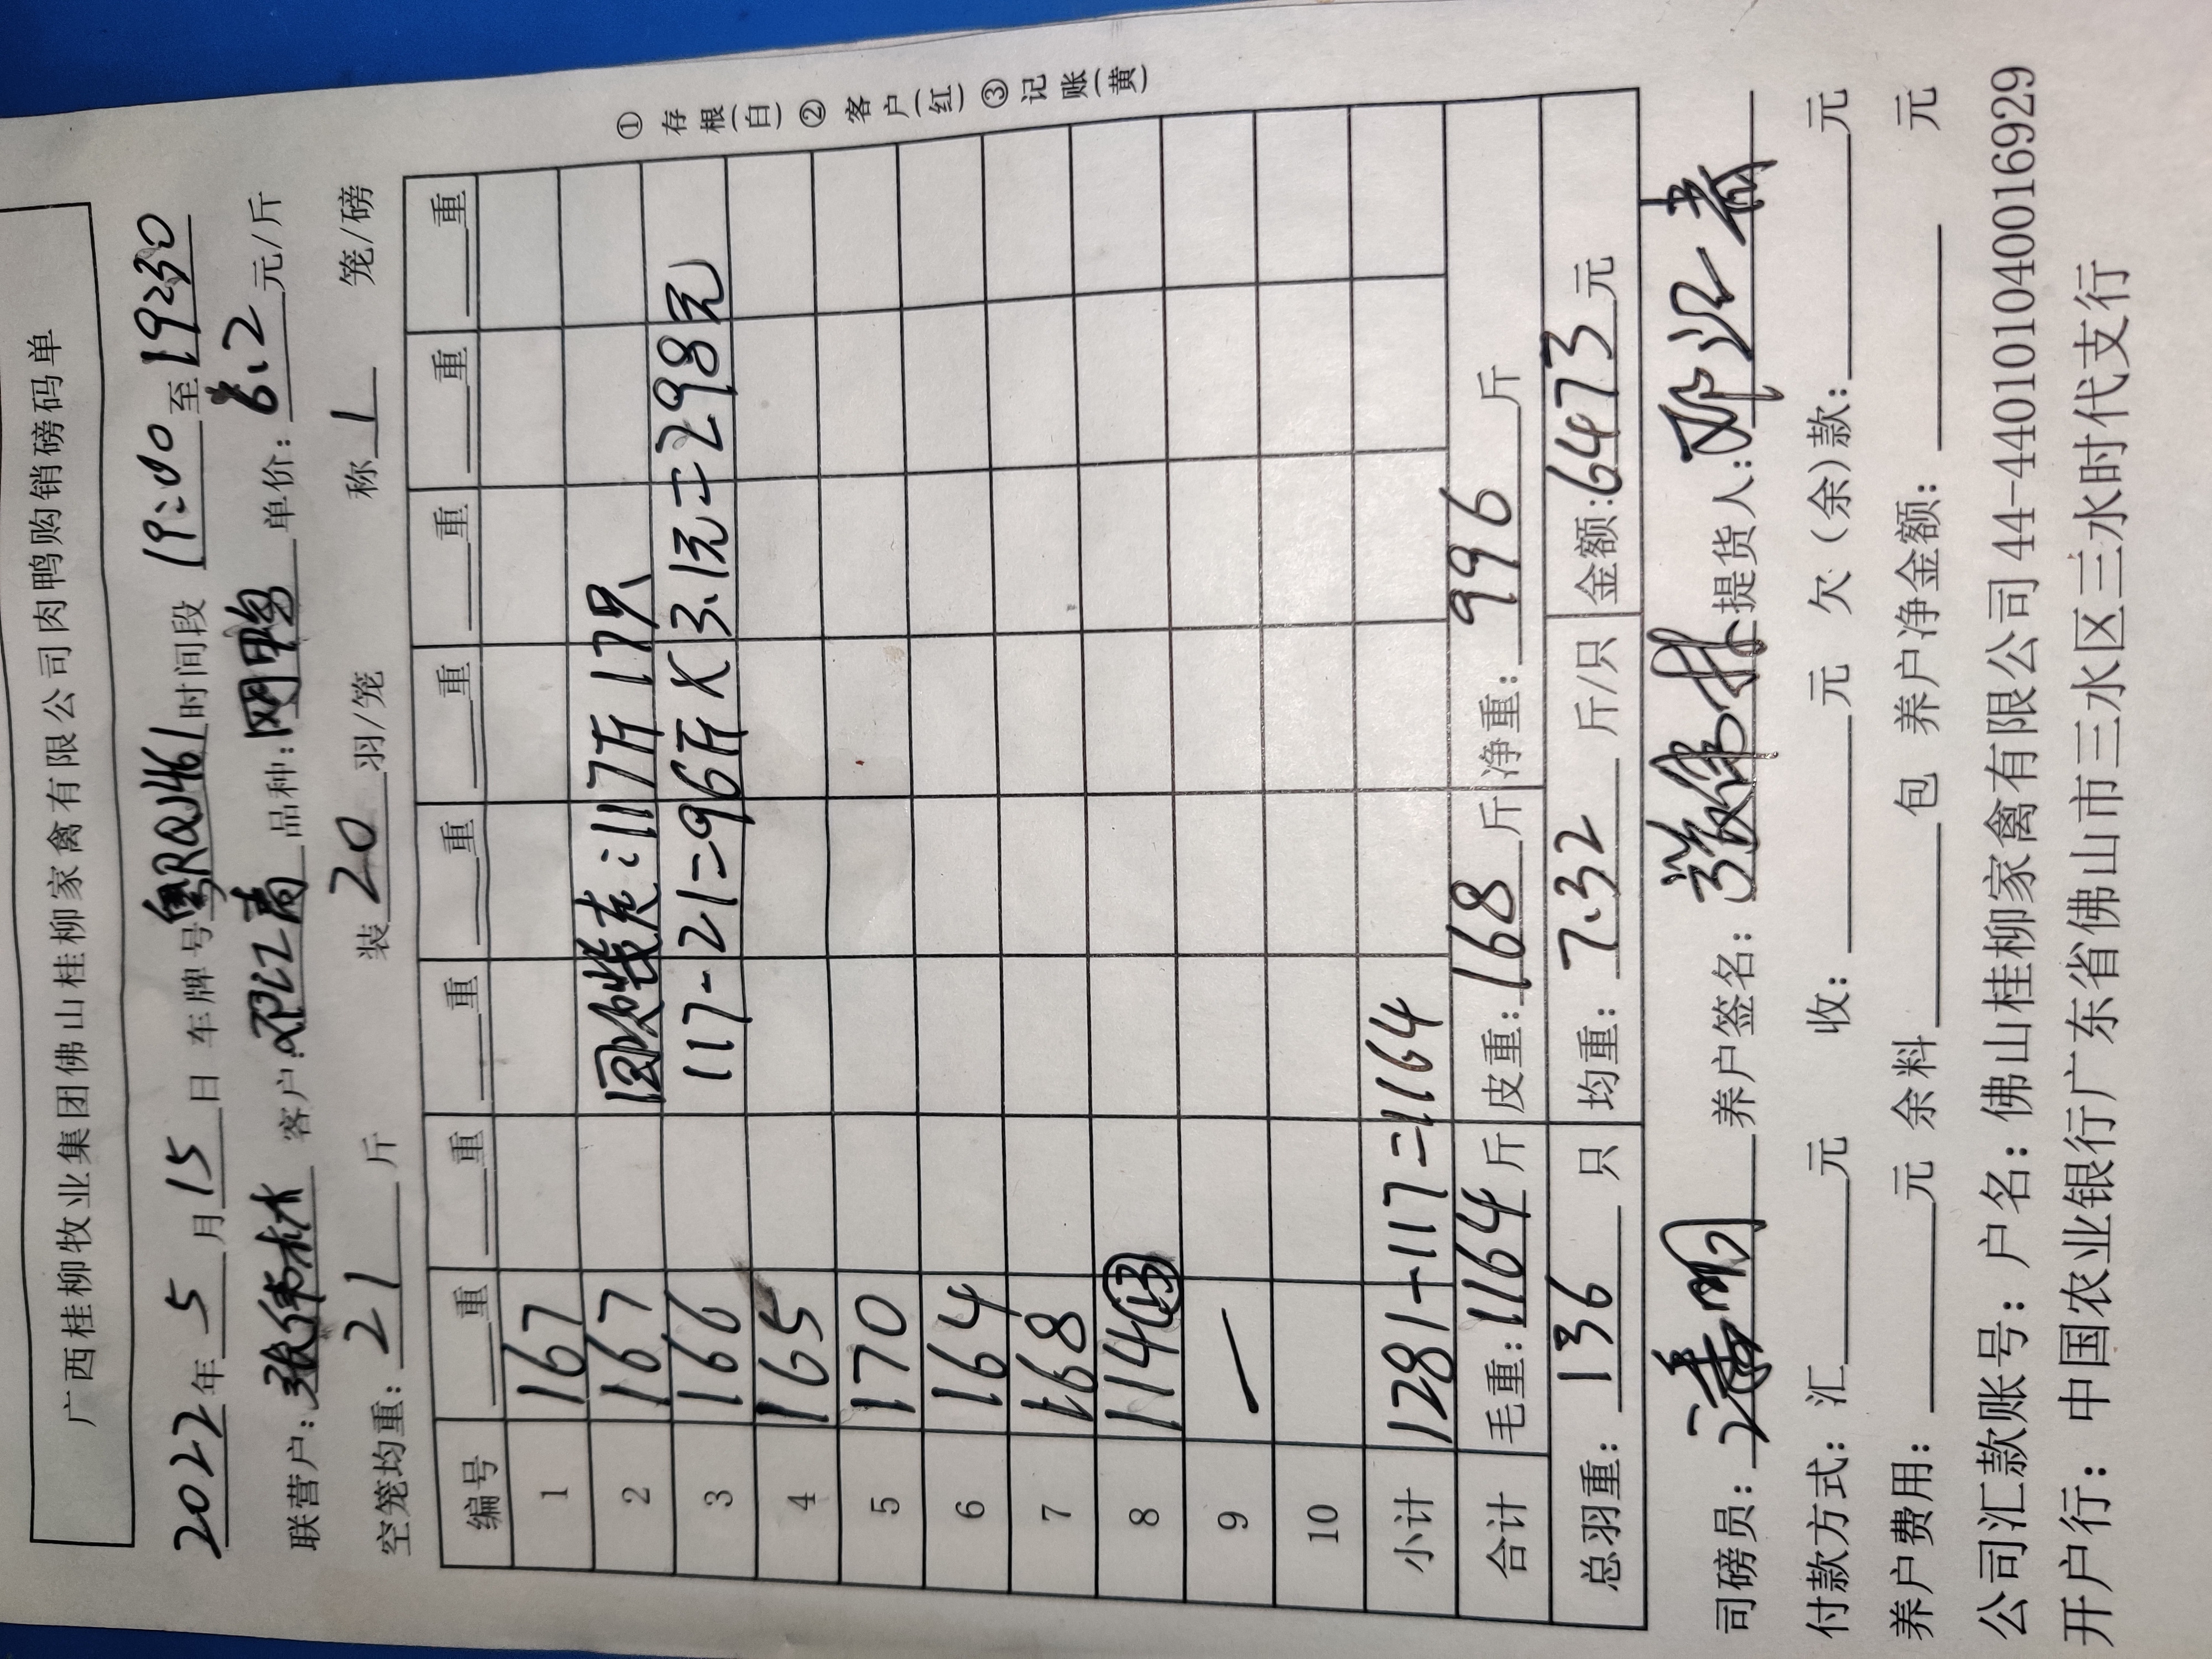 广西桂柳牧业集团佛山桂柳家禽有限公司肉鸭购销磅码单
2022年5月15日 车牌号粤RQJ461时间段 19:00至19:30
联营户:张伟林 客户:邓江 品种: 鸭 单价:6.2元/斤
空笼均重:21斤 装20羽/笼 称1 笼/磅
编号 重 重 重 重 重 重 重 重
1 167
2 167 117斤 17只
3 166 117-21=96斤×3.1元=298元
4 165
5 170
6 164
7 168
8 114(13)
9 —
10
小计 1281-117=1164
合计 毛重:1164斤 皮重:168斤 净重:996斤
总羽重:136只 均重:7.32斤/只 金额:6473元
司磅员: 养户签名:张伟林 提货人:邓江
付款方式:汇 元 收: 元 欠(余)款: 元
养户费用: 元 余料 包 养户净金额: 元
公司汇款账号:户名:佛山桂柳家禽有限公司44-440101040016929
开户行:中国农业银行广东省佛山市三水区三水时代支行
①存根(白)②客户(红)③记账(黄)